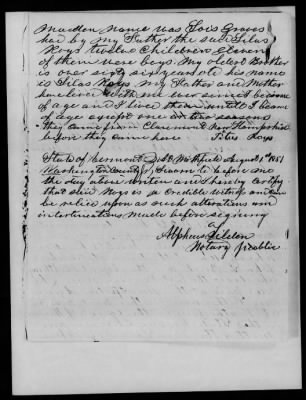 Maiden Name was Lois Graves
had by my Father the said Silas
Roys twelve Children Eleven
of them were boys. My oldest Brother
is over sixty six years old his name
is Silas Roys My Father and Mother
have lived with me ever since I became
of age and I lived them until I became
of age except one or two seasons
they came from Claremont New Hampshire
before they came here Titus Roys
State of Vermont Northfield August 1st 1851
Washington County Sworn to before me
the day above written and I hereby certify
that said Roys is a Credible Witness and can
be relied upon as such alterations and
interlineations made before signing
Alpheus Felton
Notary public